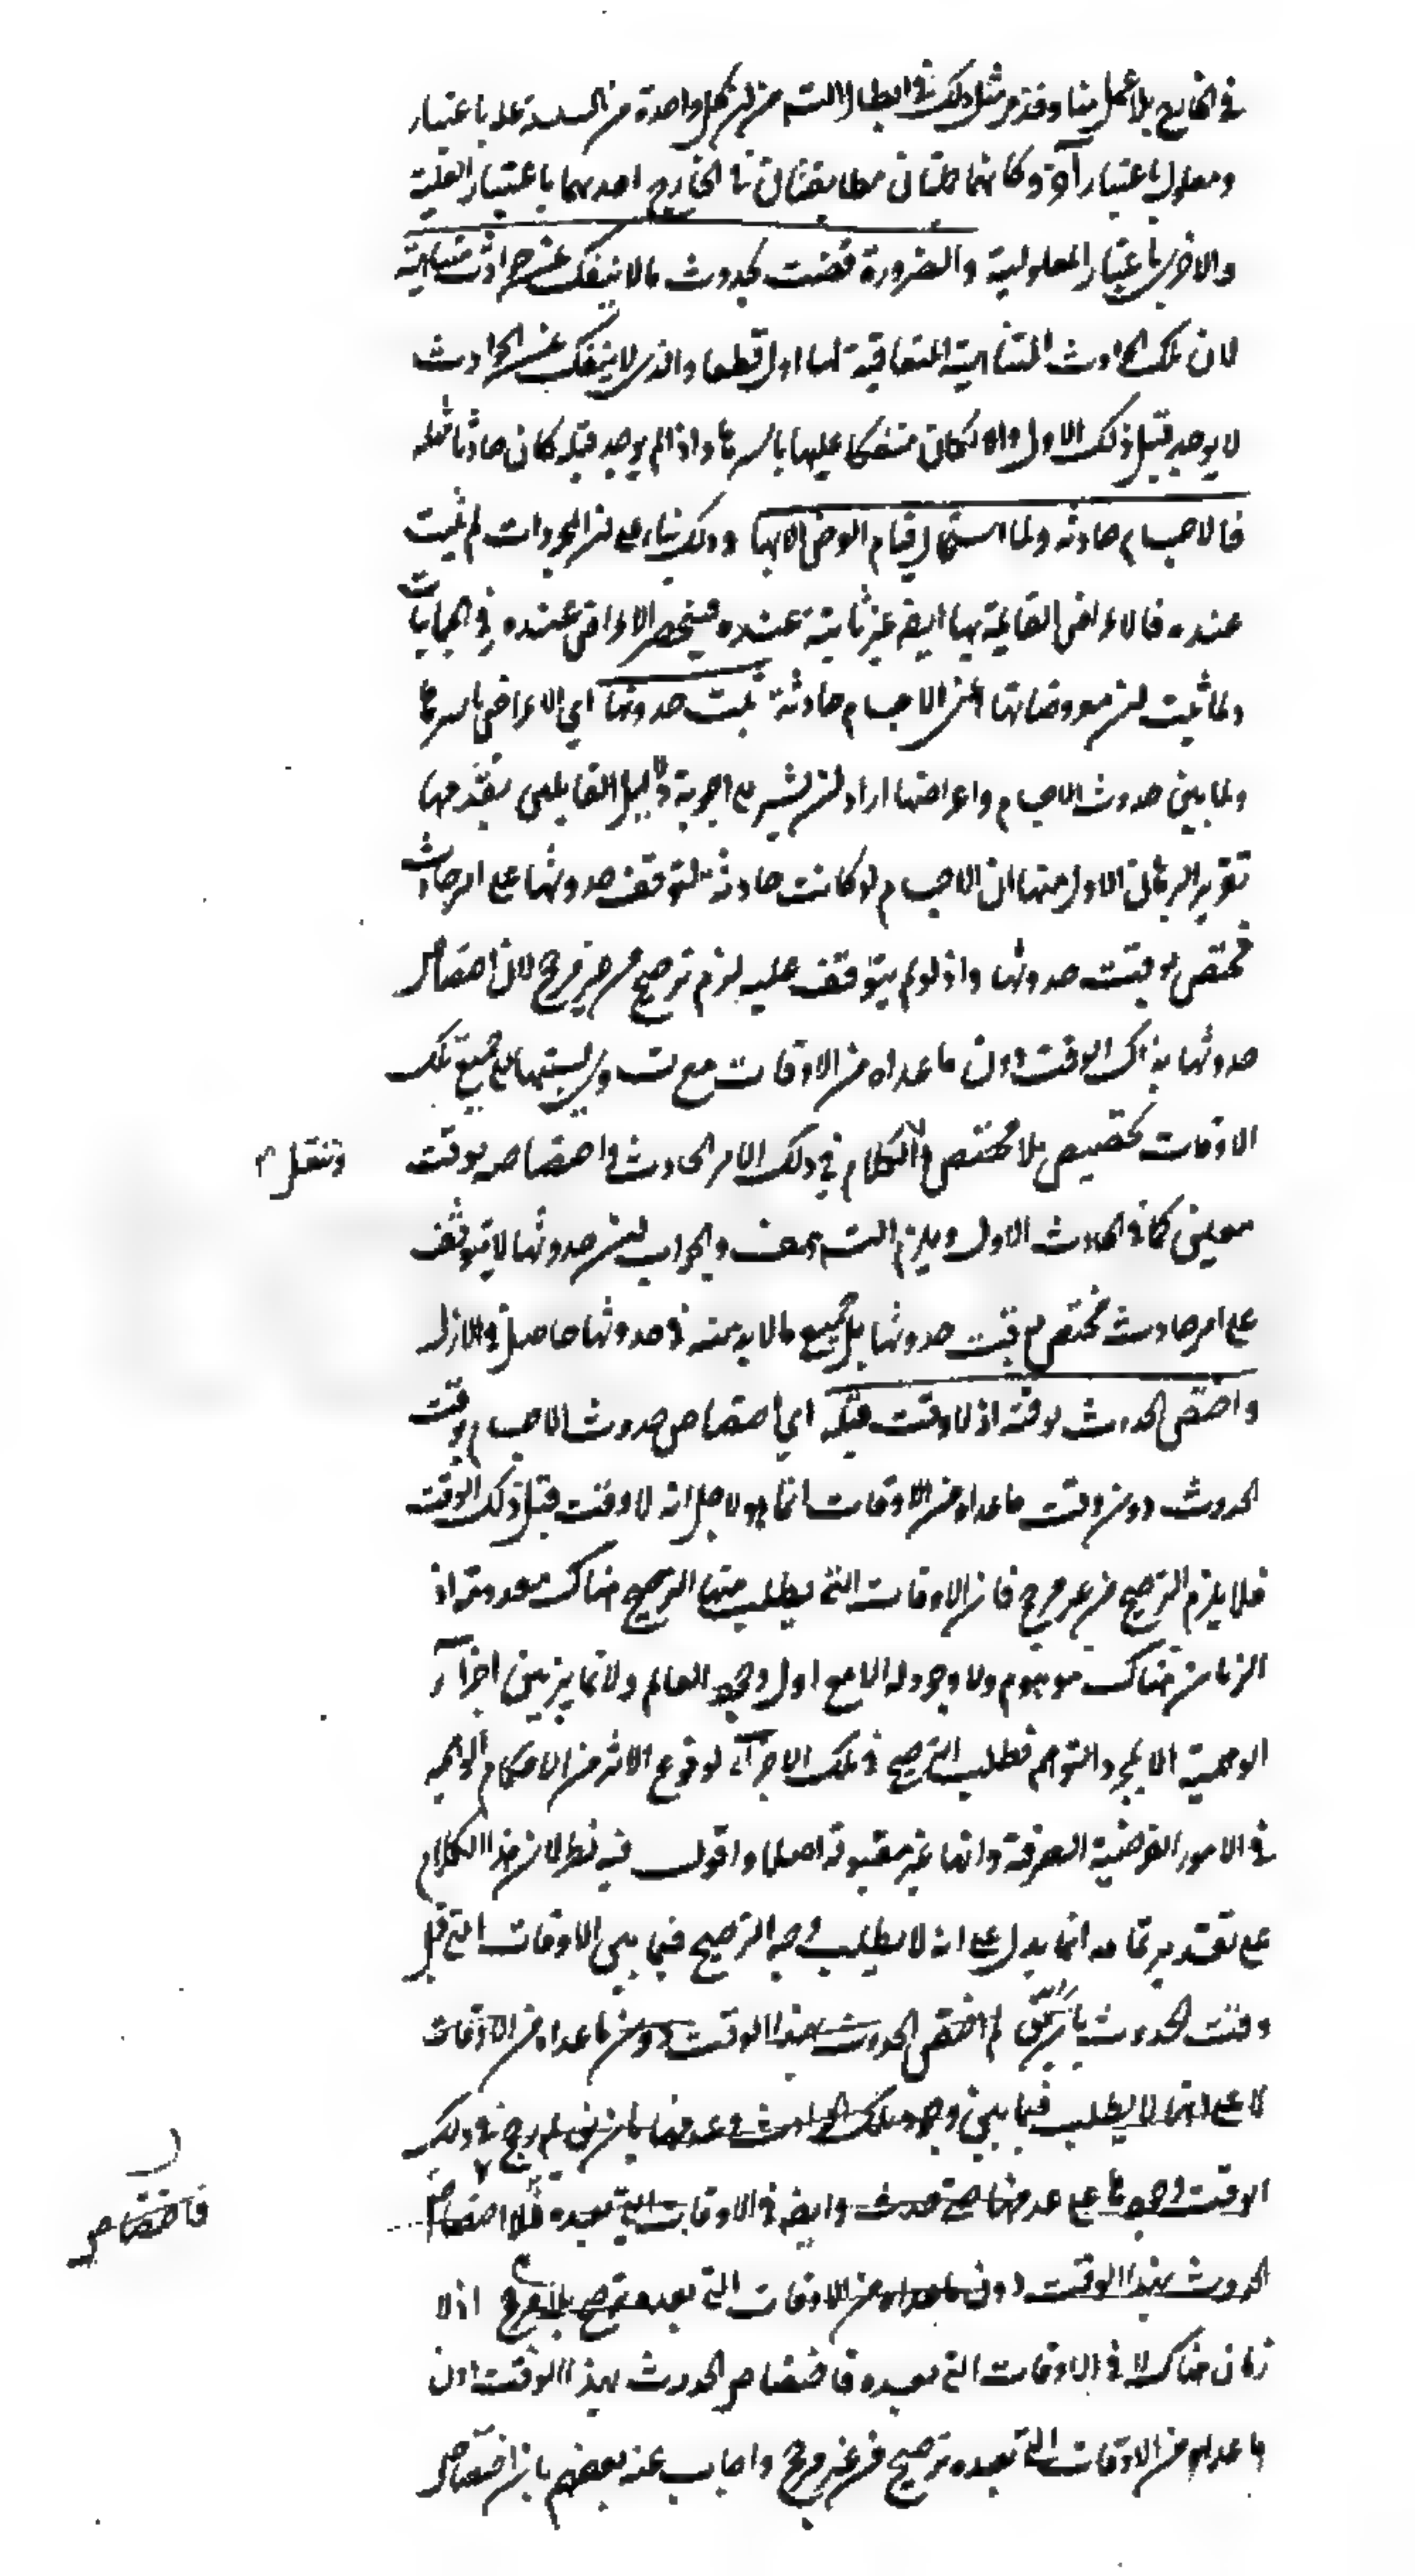 في الخارج بلا عمل منا وقد مر مثل ذلك في ابطال التسـ من ان كل واحدة من السلسلة علة باعتبار
ومعلول باعتبار آخر وكانهما جملتان متطابقتان في الخارج احديهما باعتبار العلية
والاخرى باعتبار المعلولية والضرورة قضت بحدوث ما لا ينفك عن حوادث متناهية
لان تلك الحوادث المتناهية المتعاقبة لها اول قطعا والذي لا ينفك عن الحوادث
لا يوجد قبل ذلك الاول والا لكان منفكا عليها باسرها واذا لم يوجد قبله كان حادثا مثله
فالاجسام حادثه ولما استحال قيام الاعراض الا بها وذلك بناء على ان المجردات لم يثبت
عنده فالاعراض القائمة بها ايضا غير ثابتة عنده فينحصر الاعراض عنده في الجسمانيات
ولما ثبت ان معروضاتها اعني الاجسام حادثة ثبت حدوثها اي الاعراض باسرها
ولما بين حدوث الاجسام واعراضها اراد ان يشير الى اجوبة دلايل القايلين بقدمها
تقرير البرهان الاول منها ان الاجسام لو كانت حادثة لتوقف حدوثها على امر حادث
مختص بوقت حدوثها واذ لو لم يتوقف عليه لزم ترجيح من غير مرجح لان اختصاص
حدوثها بذلك الوقت دون ما عداه من الاوقات مع تساوي نسبتها الى جميع تلك
الاوقات تخصيص بلا مخصص الكلام في ذلك الامر الحادث في اختصاصه بوقت
وننقل
معين كما في الحادث الاول ويلزم التسـ والجواب ان حدوثها لا يتوقف
على امر حادث مختص بوقت حدوثها بل جميع ما لا بد منه في حدوثها حاصل في الازل
واختص الحدوث بوقته اذ لا وقت قبله اي اختصاص حدوث الاجسام بوقت
الحدوث دون وقت ما عداه من الاوقات انما هو لاجل انه لا وقت قبل ذلك الوقت
فلا يلزم الترجيح من غير مرجح فان الاوقات التي يطلب منها الترجيح هناك معدومة اذ
الزمان هناك موهوم ولا وجود له الا مع اول وجود العالم ولا تمايز بين اجزآئه
الوهمية الا بمجرد التوهم فطلب الترجيح في تلك الاجزآء لوقوع الاثر من الاحكام الوهمية
في الامور الفرضية الصرفة وانها غير مقبولة اصلا واقول فيه نظر لان هذا الكلام
على تقدير تمامه انما يدل على انه لا يطلب وجه الترجيح فيما بين الاوقات التي قبل
وقت الحدوث بان يقال لم اختص الحدوث بهذا الوقت دون ما عداه من الاوقات
لا على انها لا يطلب فيما بين وجود تلك الحوادث وعدمها بان يقال لم رجح في ذلك
الوقت وجودها على عدمها حتى حدث وايضا في الاوقات التي بعده فلا اختصاص
فاختصاص
الحدوث بهذا الوقت دون ما عداه من الاوقات التي بعده ترجيح بلا مرجح اذ لا
زمان هناك لا في الاوقات التي بعده فاختصاص الحدوث بهذا الوقت دون
ما عداه من الاوقات التي بعده ترجيح من غير مرجح واجاب عنه بعضهم بان اختصاص